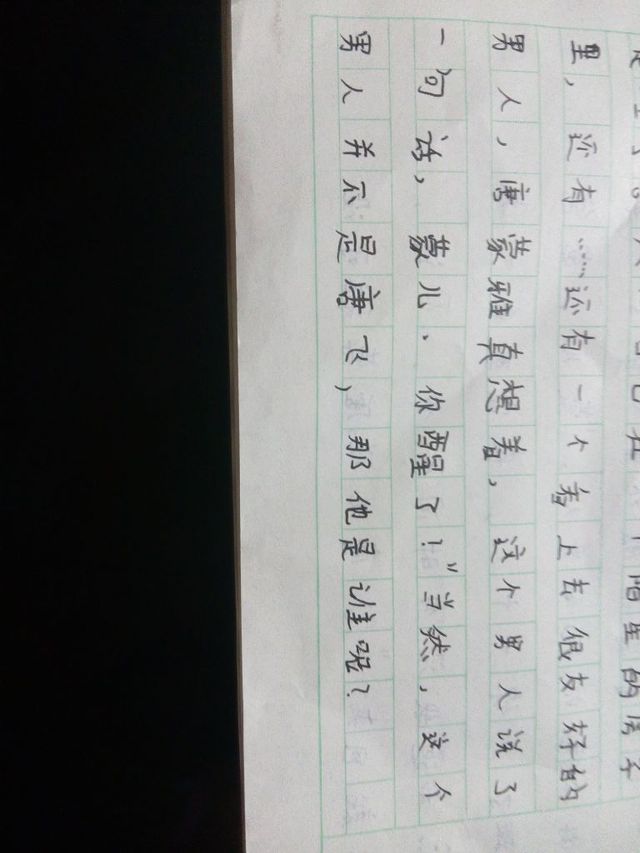 自己在一个陌生的房子
里，还有……还有一个看上去很友好的
男人，唐蒙雅真想着，这个男人说了
一句话，蒙儿．你醒了！”当然，这个
男人并不是唐飞，那他是谁呢？